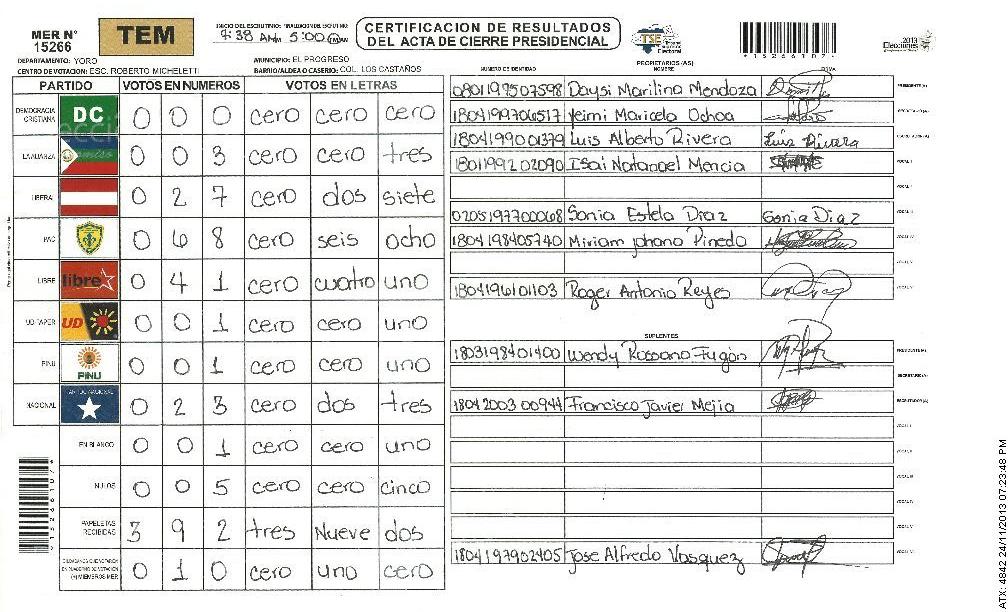 MER N° 15266
TEM
INICIO DEL ESCRUTINIO: FINALIZACION DEL ESCRUTINIO:
9:38 AM 5:00 PM
CERTIFICACION DE RESULTADOS
DEL ACTA DE CIERRE PRESIDENCIAL
TSE
*1526610?*
2013
Elecciones
DEPARTAMENTO: YORO
MUNICIPIO: EL PROGRESO
CENTRO DE VOTACION: ESC. ROBERTO MICHELETTI
BARRIO/ALDEA O CASERIO: COL. LOS CASTAÑOS
PARTIDO VOTOS EN NUMEROS VOTOS EN LETRAS
DEMOCRACIA CRISTIANA DC 0 0 0 cero cero cero
LA ALIANZA 0 0 3 cero cero tres
LIBERAL 0 2 7 cero dos siete
PAC 0 6 8 cero seis ocho
LIBRE libre 0 4 1 cero cuatro uno
UD-FAPER UD 0 0 1 cero cero uno
PINU PINU 0 0 1 cero cero uno
NACIONAL PARTIDO NACIONAL 0 2 3 cero dos tres
EN BLANCO 0 0 1 cero cero uno
NULOS 0 0 5 cero cero cinco
PAPELETAS RECIBIDAS 3 9 2 tres Nueve dos
CIUDADANOS QUE VOTARON EN CUADERNO DE VOTACION (+) MIEMBROS MER 0 1 0 cero uno cero
PROPIETARIOS (AS)
NUMERO DE IDENTIDAD NOMBRE FIRMA
0801199507598 Daysi Marilina Mendoza PRESIDENTE(A)
1804199706517 Yeimi Maricela Ochoa SECRETARIO(A)
1804199001379 Luis Alberto Rivera Luis Rivara ESCRUTADOR(A)
1801199202090 Isai Natanael Mencia VOCAL I
VOCAL II
0205197700068 Sonia Estela Diaz Sonia Diaz VOCAL III
1804198405740 Miriam Johana Pinedo VOCAL IV
VOCAL V
1804196101103 Roger Antonio Reyes VOCAL VI
SUPLENTES
1803198401400 Wendy Rossana Fugón PRESIDENTE(A)
SECRETARIO(A)
1804200300944 Francisco Javier Mejia ESCRUTADOR(A)
VOCAL I
VOCAL II
VOCAL III
VOCAL IV
VOCAL V
1804197902405 Jose Alfredo Vasquez VOCAL VI
ATX: 4842 24/11/2013 07:23:48 PM